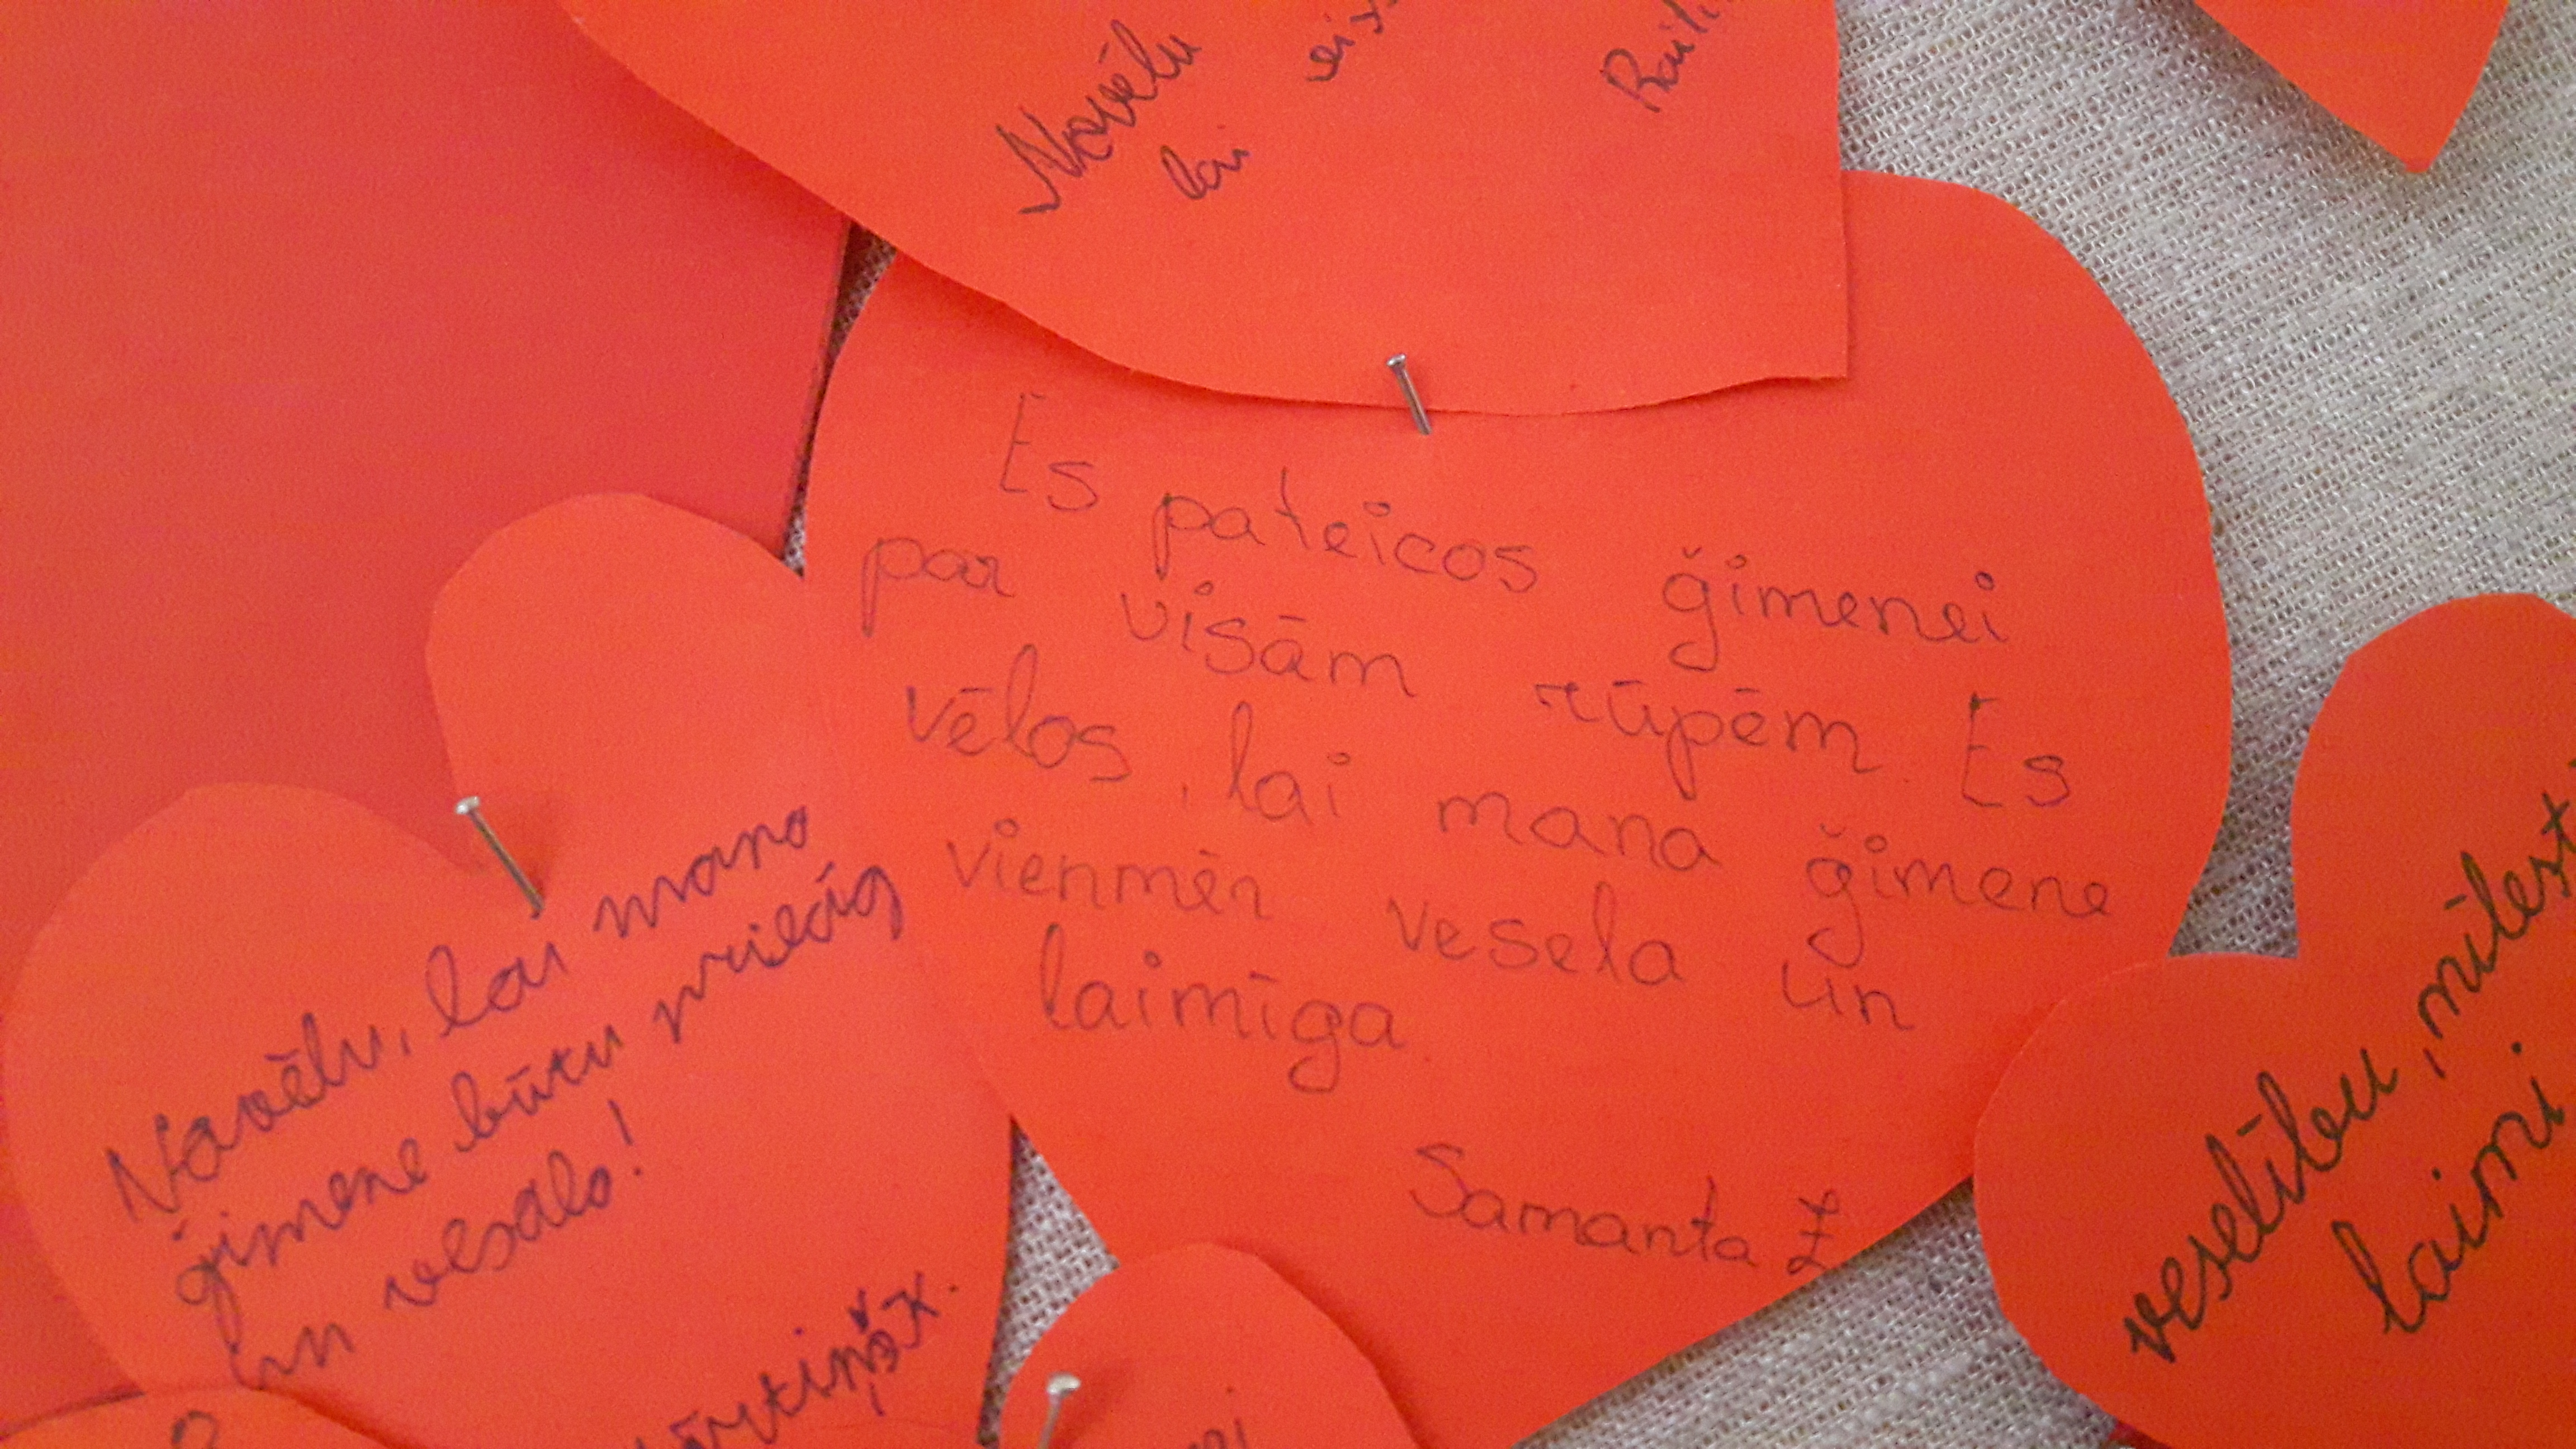 Novēlu
lai
Es pateicos ģimenei
par visām rūpēm. Es
vēlos, lai mana ģimene
vienmēr vesela un
laimīga.
Samanta Z
Novēlu, lai mana
ģimene būtu priecīg
un vesala!
veselību, mīlest
laimi